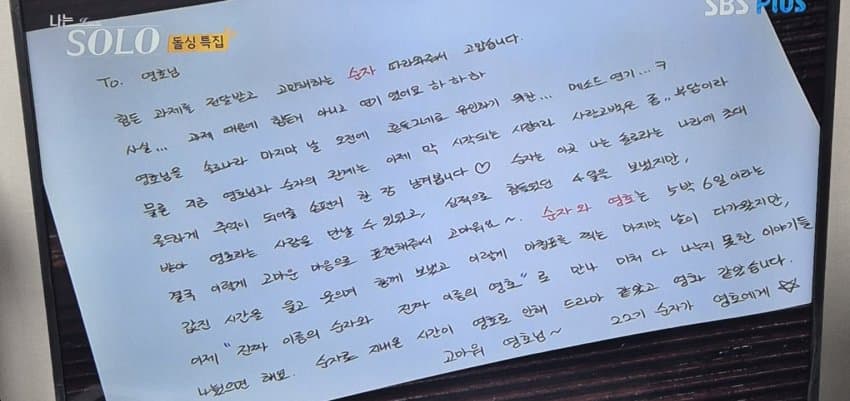 나는
SOLO 돌싱 특집
SBS Plus
To. 영호님
힘든 과제를 전달받고 고민해하는 순자 따라와줘서 고맙습니다.
사실... 과제 때문에 힘든거 아니고 연기 였어요 하 하 하
영호님을 솔로나라 마지막 날 오전에 흔들그네로 유인하기 위한... 메소드 연기...ㅋ
물론 지금 영호님과 순자의 관계는 이제 막 시작되는 시점이라 사랑고백은 좀.. 부담이라
올드하게 추억이 되어줄 손편지 한 장 남겨봅니다 ♡ 순자는 이곳 나는 솔로라는 나라에 초대
받아 영호라는 사람을 만날 수 있었고, 심적으로 힘들었던 4일을 보냈지만,
결국 이렇게 고마운 마음으로 표현해줘서 고마워요~. 순자와 영호는 5박 6일이라는
값진 시간을 울고 웃으며 함께 보냈고 이렇게 마침표를 찍는 마지막 날이 다가왔지만,
이제 "진짜 이름의 순자와 진짜 이름의 영호"로 만나 미처 다 나누지 못한 이야기들
나눴으면 해요. 순자로 지내온 시간이 영호로 인해 드라마 같았고 영화 같았습니다.
고마워 영호님~ 22기 순자가 영호에게 ☆